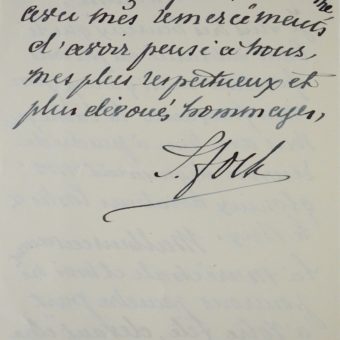 avec mes remerciements
d'avoir pensé à nous,
mes plus respectueux et
plus dévoués hommages,
J. Foch